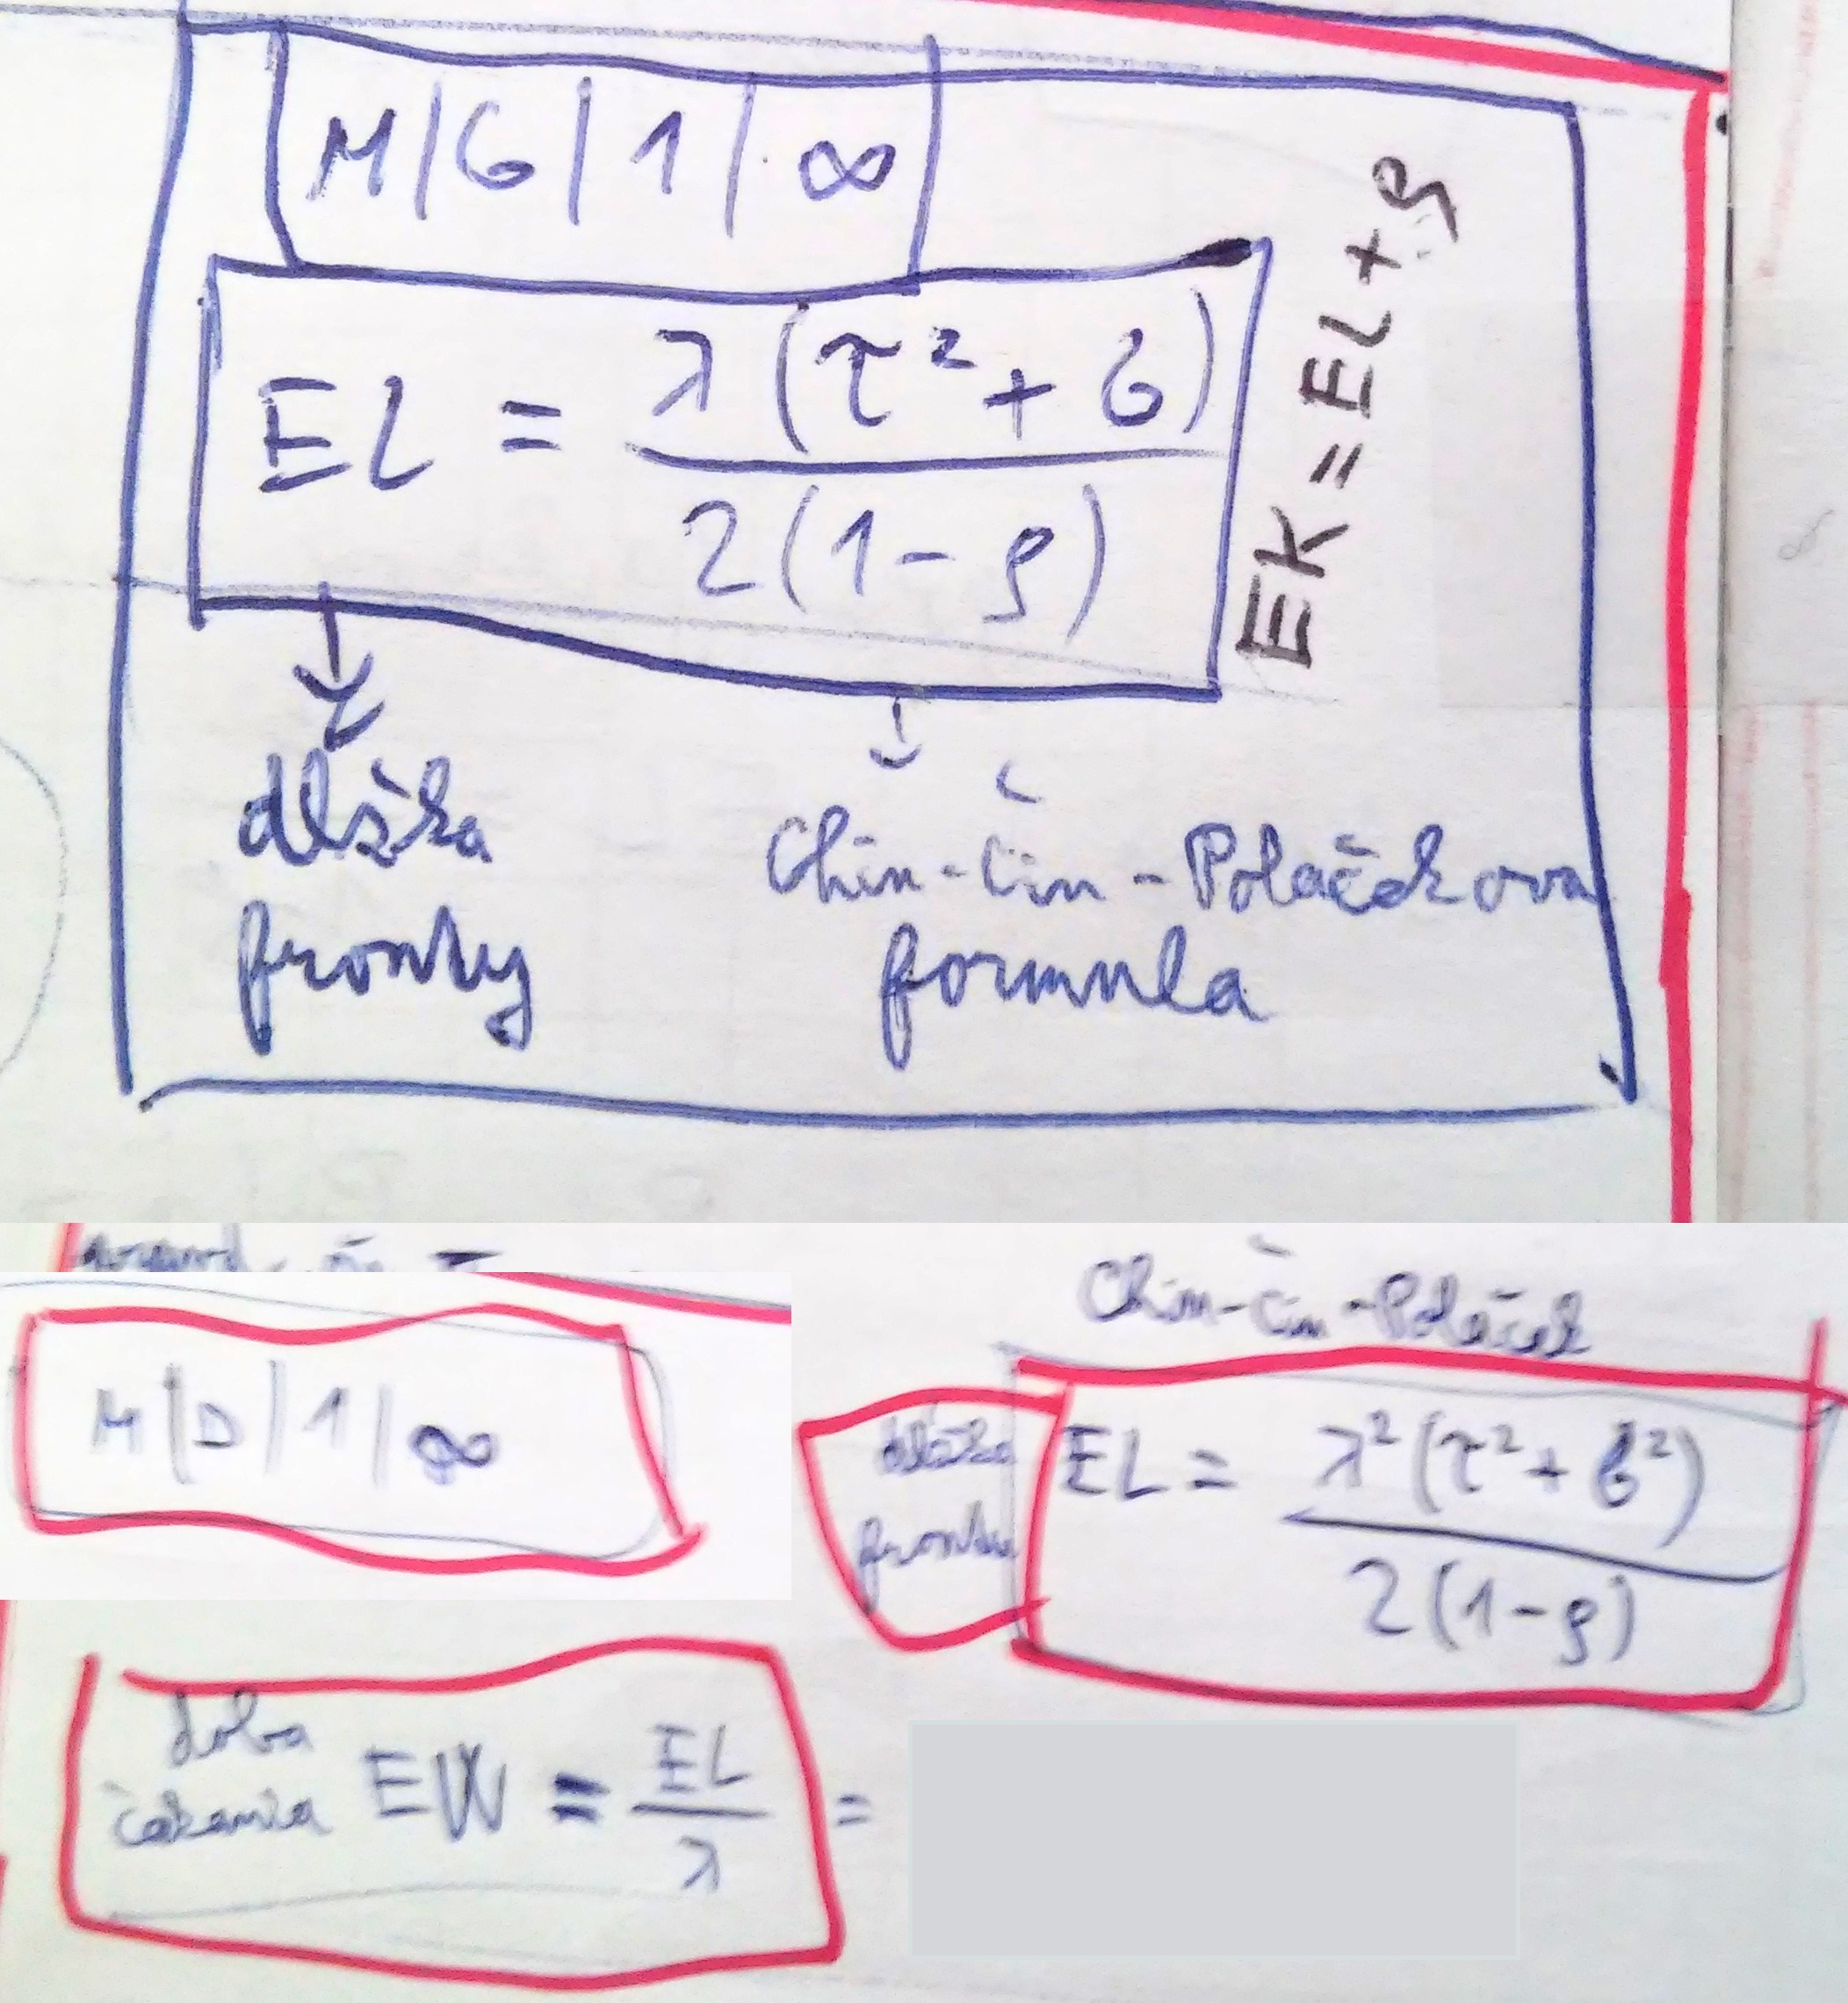 M|G|1|∞
EL = λ(τ² + б) / 2(1-ρ)
EK = EL + ρ
dĺžka
fronty
Chin-Čin-Poláčekova
formula
Chin-Čin-Poláček
M|D|1|∞
dĺžka
fronty
EL = λ²(τ² + б²) / 2(1-ρ)
doba
čakania
EW = EL / λ =